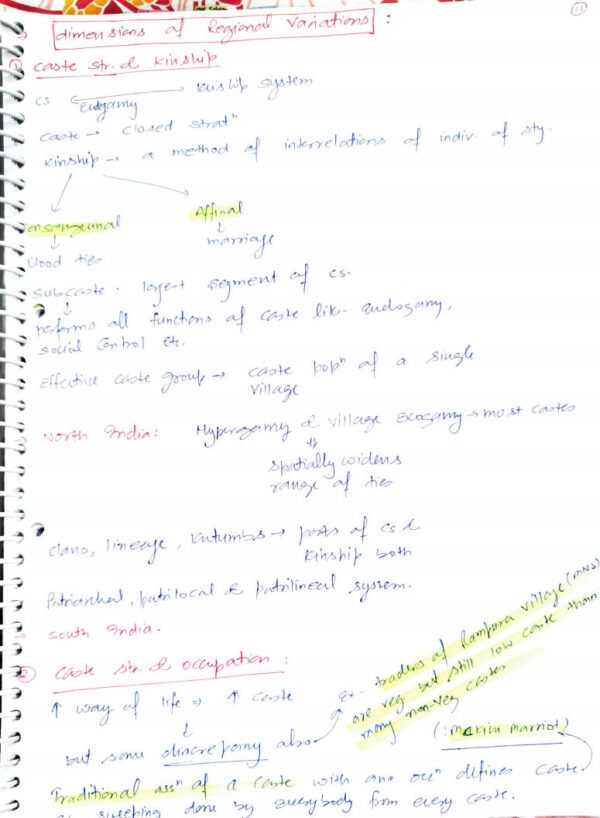 11
dimensions of Regional Variations :
① Caste str. & Kinship
CS Kinship system
Endogamy
Caste → Closed stratⁿ
Kinship → a method of interrelations of indiv. of sty.
onsanguinal
Affinal
↓
marriage
↓
blood ties
Subcaste : largest segment of CS.
↓
performs all functions of caste like - endogamy,
social control etc.
Effective caste group → caste popⁿ of a single
village
North India : Hypergamy & village Exogamy → most castes
⇓
spatially widens
range of ties
Clans, lineage, Kutumbs → parts of CS &
Kinship both
Patriarchal, patrilocal & patrilineal system.
South India.
② Caste str. & occupation :
↑ way of life ⇒ ↑ caste
↓
but some discrepancy also
Ex - traders of Rampura village (MNS)
are veg but still low caste than
many non-veg castes
(: marriot)
Traditional assⁿ of a caste with occⁿ defines caste
sweeping done by everybody from every caste.